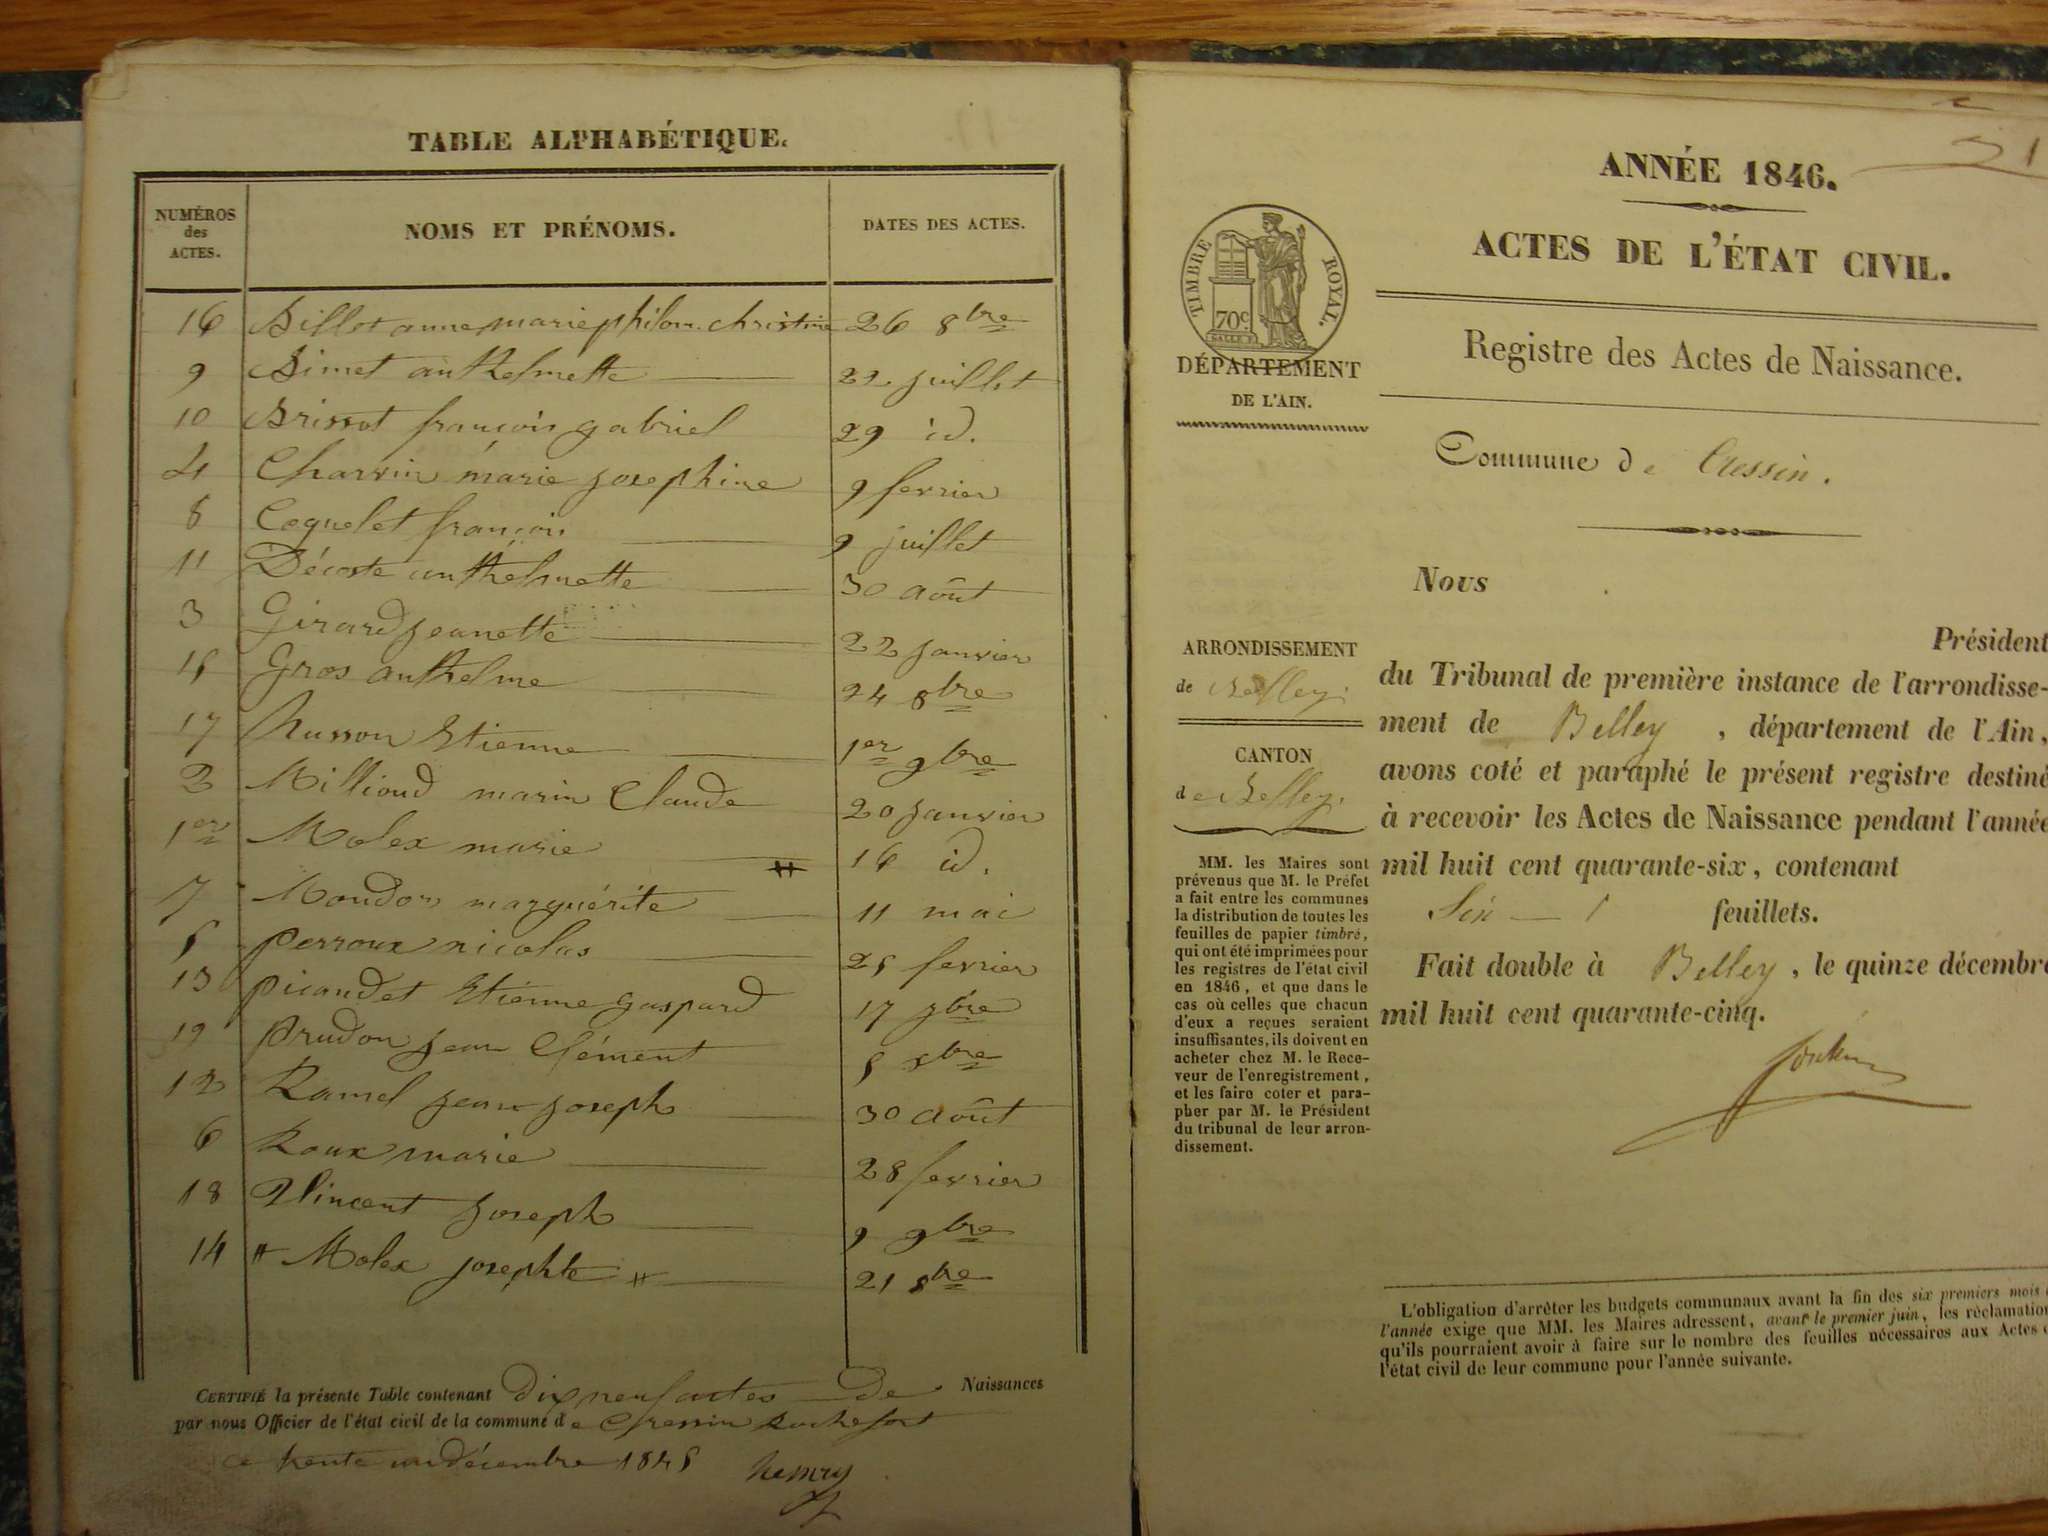 TABLE ALPHABÉTIQUE.
NUMÉROS
des
ACTES.
NOMS ET PRÉNOMS.
DATES DES ACTES.
16 Billot anne marie philom. christine 26 8bre
9 Bimet anthelmette 22 juillet
10 Brissot françois gabriel 29 id.
4 Charvin marie josephine 9 fevrier
8 Coquelet françois 9 juillet
11 Décoste anthelmette 30 août
3 Girard jeanette 22 janvier
15 Gros anthelme 24 8bre
17 husson Etienne 1er 9bre
2 Millioud marin Claude 20 janvier
1er Molex marie 16 id.
7 Moudon marguérite 11 mai
5 perroux nicolas 25 fevrier
13 picaudet Etienne gaspard 17 7bre
19 prudon jean Clément 5 bre
12 Ramel jean joseph 30 août
6 Roux marie 28 fevrier
18 Vincent joseph 9 9bre
14 Molex josephte 21 8bre
CERTIFIÉ la présente Table contenant dix neuf actes de Naissances
par nous Officier de l'état civil de la commune de Cressin Rochefort
ce trente un décembre 1845 henry
31
ANNÉE 1846.
ACTES DE L'ÉTAT CIVIL.
TIMBRE ROYAL.
70c
DÉPARTEMENT
DE L'AIN.
Registre des Actes de Naissance.
Commune de Cressin.
Nous
Président
du Tribunal de première instance de l'arrondisse-
ment de Belley, département de l'Ain,
avons coté et paraphé le présent registre destiné
à recevoir les Actes de Naissance pendant l'année
mil huit cent quarante-six, contenant
Six feuillets.
Fait double à Belley, le quinze décembre
mil huit cent quarante-cinq.
ARRONDISSEMENT
de Belley.
CANTON
de Belley.
MM. les Maires sont
prévenus que M. le Préfet
a fait entre les communes
la distribution de toutes les
feuilles de papier timbré,
qui ont été imprimées pour
les registres de l'état civil
en 1846, et que dans le
cas où celles que chacun
d'eux a reçues seraient
insuffisantes, ils doivent en
acheter chez M. le Rece-
veur de l'enregistrement,
et les faire coter et para-
pher par M. le Président
du tribunal de leur arron-
dissement.
L'obligation d'arrêter les budgets communaux avant la fin des six premiers mois
l'année exige que MM. les Maires adressent, avant le premier juin, les réclamation
qu'ils pourraient avoir à faire sur le nombre des feuilles nécessaires aux Actes
l'état civil de leur commune pour l'année suivante.